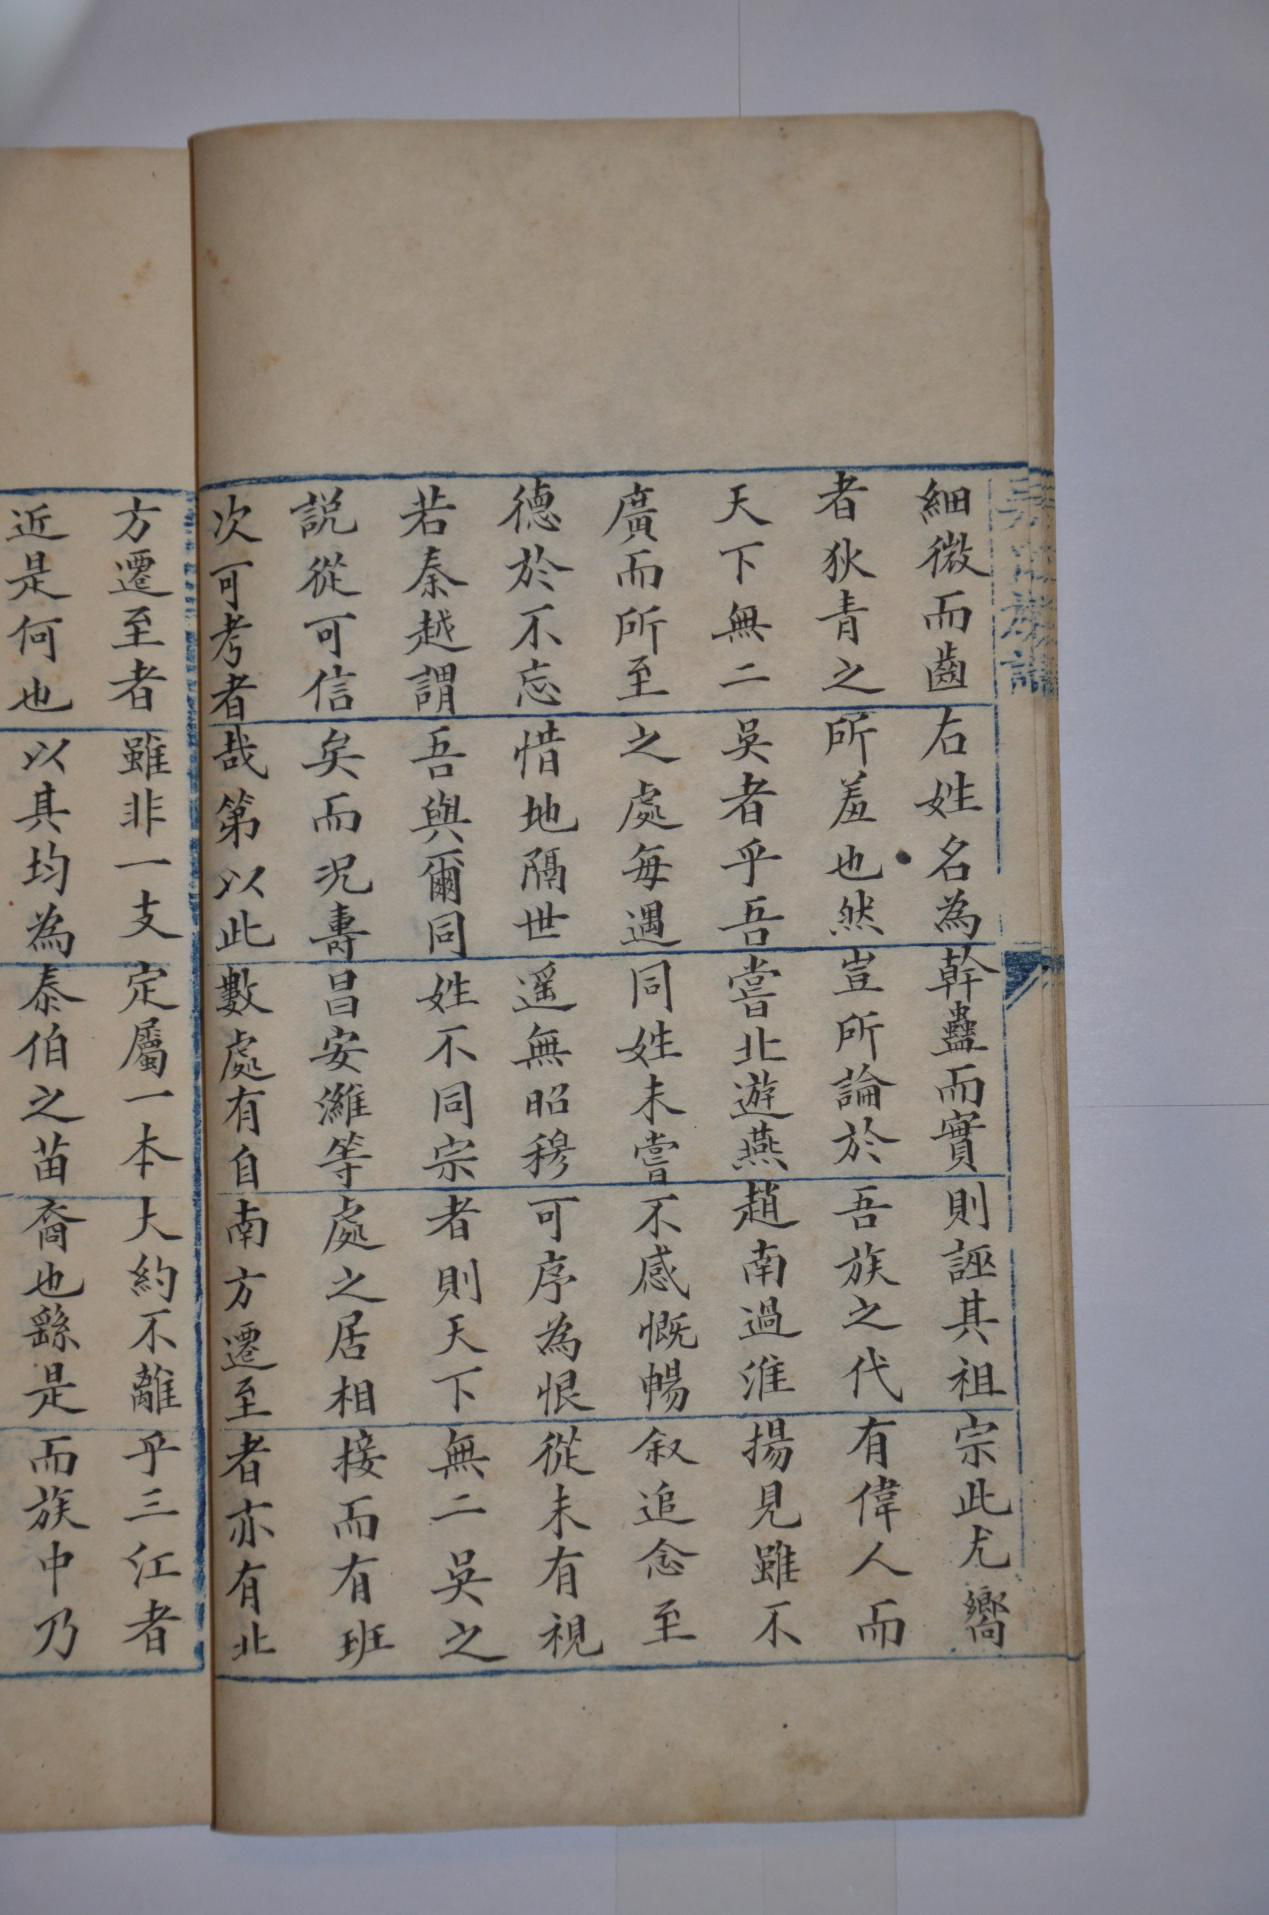 細微而齒右姓名為幹蠱而實則誣其祖宗此尤嚮
者狄青之所羞也然豈所論於吾族之代有偉人而
天下無二吳者乎吾嘗北遊燕趙南過淮揚見雖不
廣而所至之處每遇同姓未嘗不感慨暢叙追念至
德於不忘惜地隔世遥無昭穆可序為恨從未有視
若秦越謂吾與爾同姓不同宗者則天下無二吳之
説從可信矣而況壽昌安濰等處之居相接而有班
次可考者哉第以此數處有自南方遷至者亦有北
方遷至者雖非一支定屬一本大約不離乎三江者
近是何也以其均為泰伯之苗裔也繇是而族中乃